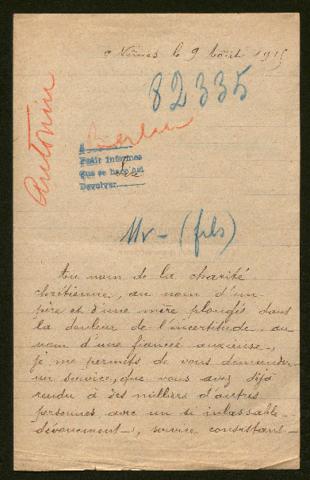 Nîmes le 9 Août 1915
82335
Antonin
Berlin
Pedir informes
que se haga aqui
Devolver
Mr - (fils)
Au nom de la charité
chrétienne, au nom d'un
père et d'une mère plongés dans
la douleur de l'incertitude, au
nom d'une fiancée anxieuse,
je me permets de vous demander
un service, que vous avez déjà
rendu à des milliers d'autres
personnes avec un si inlassable
dévouement, service consistant